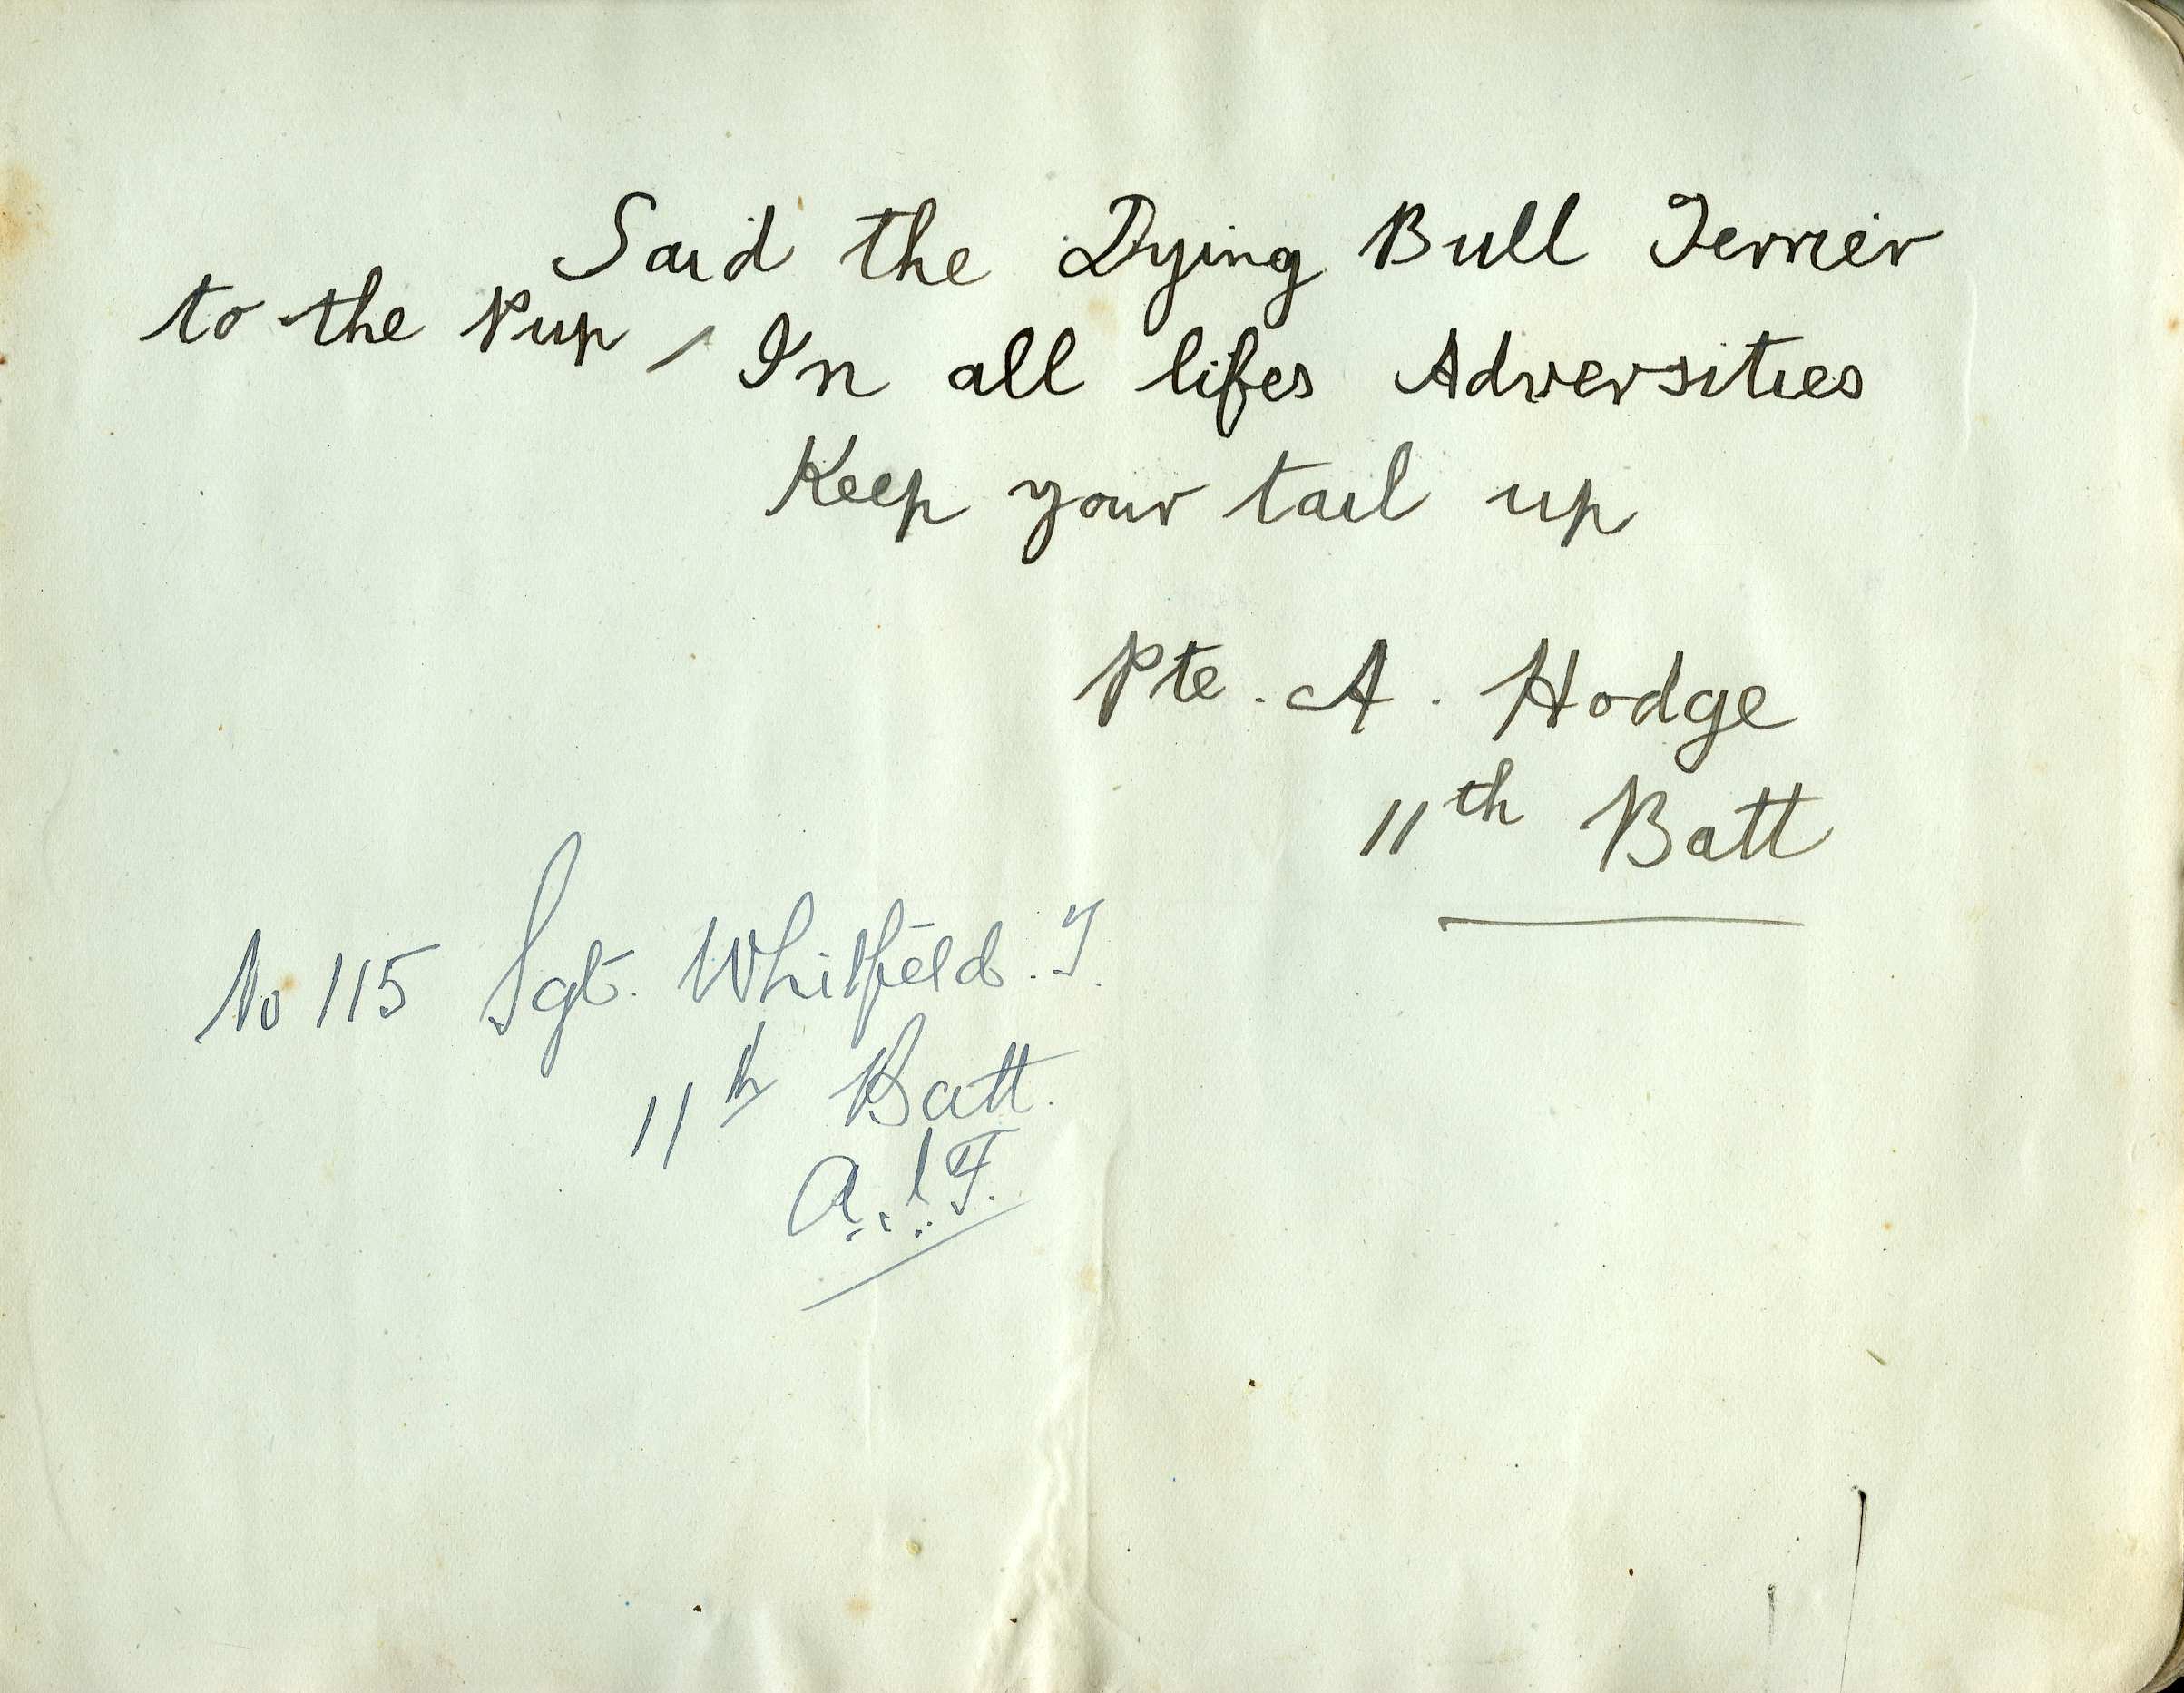 Said the Dying Bull Terrier
to the Pup / In all lifes Adversities
Keep your tail up
Pte. A. Hodge
11th Batt
No 115 Sgt. Whitfield. T.
11th Batt.
A.I.F.